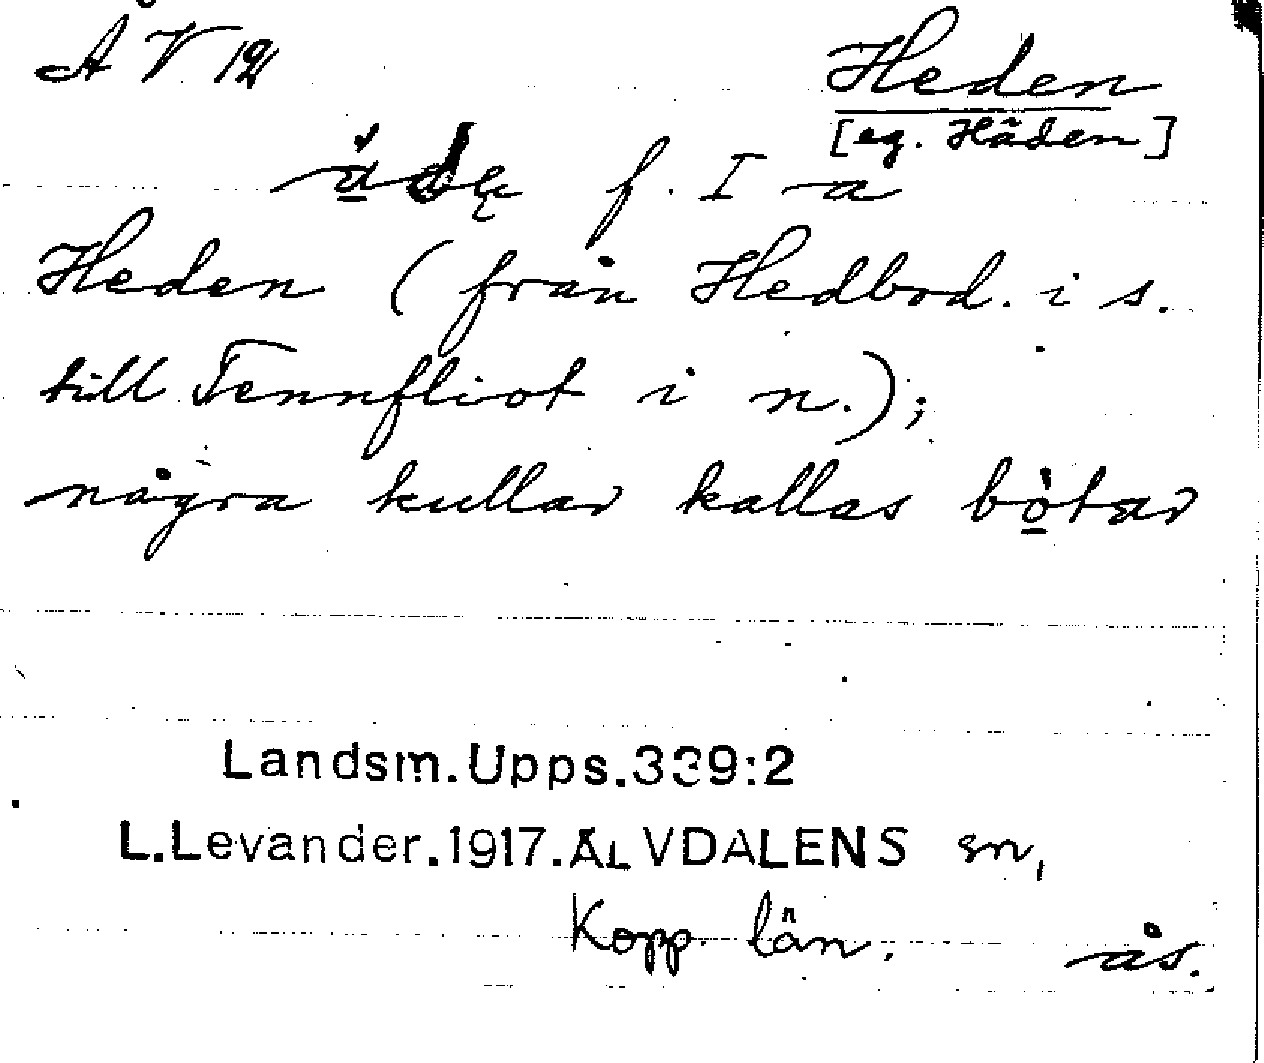 Å V 12
Heden
[eg. Häden]
f. I a
Heden (från Hedbod. i s.
till Tennfliot i n.);
några kullar kallas bo̱tar
Landsm.Upps.339:2
L.Levander.1917.ÄLVDALENS sn,
Kopp. län.
ås.